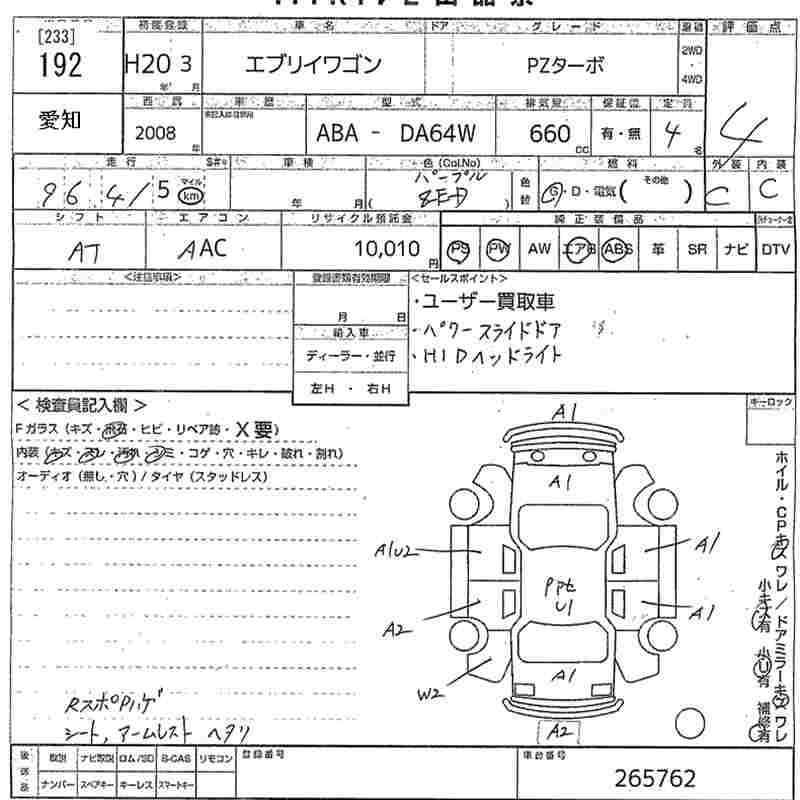 [233]
192
初度登録 車名 ドア グレード 評価点
H20 3 年 月 エブリイワゴン PZターボ 2WD 4WD 4
愛知
西暦 車歴 型式 排気量 保証書 定員
2008 年 ABA - DA64W 660 cc 有・無 4 名
走行 車検 色(Col.No) 燃料 外装 内装
96,415 マイル km 年 月 パープル ZED ( ) 色替 G・D・電気( その他 ) C C
シフト エアコン リサイクル預託金 純正装備品
AT AAC 10,010円 PS PW AW エアB ABS 革 SR ナビ DTV
<注意事項> 登録書類有効期限 <セールスポイント>
月 日
輸入車
ディーラー・並行
左H ・ 右H
・ユーザー買取車
・パワースライドドア
・HIDヘッドライト
<検査員記入欄> キーロック
Fガラス(キズ・飛石・ヒビ・リペア跡・X要)
内装(キズ・スレ・汚れ・シミ・コゲ・穴・キレ・破れ・割れ)
オーディオ(無し・穴)/タイヤ(スタッドレス)
A1
A1
A1U2
A1
Pﾀｾ
U1
A2
A1
W2
A1
A2
ホイル・CPキズ ワレ/ドアミラーキズ ワレ
小キズ有 小U有 補修有
RスポPハゲ
シート,アームレスト ヘタリ
後送品 取説 ナビ取説 ロム/SD B-CAS リモコン 登録番号 車台番号
ナンバー スペアキー キーレス スマートキー 265762